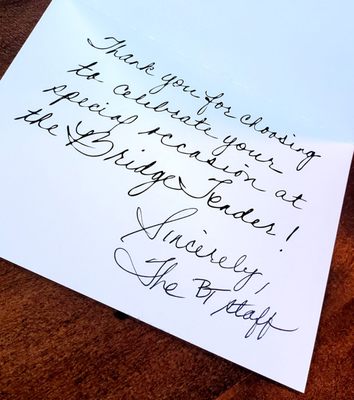 Thank you for choosing
to celebrate your
special occasion at
the Bridge Tender!
Sincerely,
The BT staff